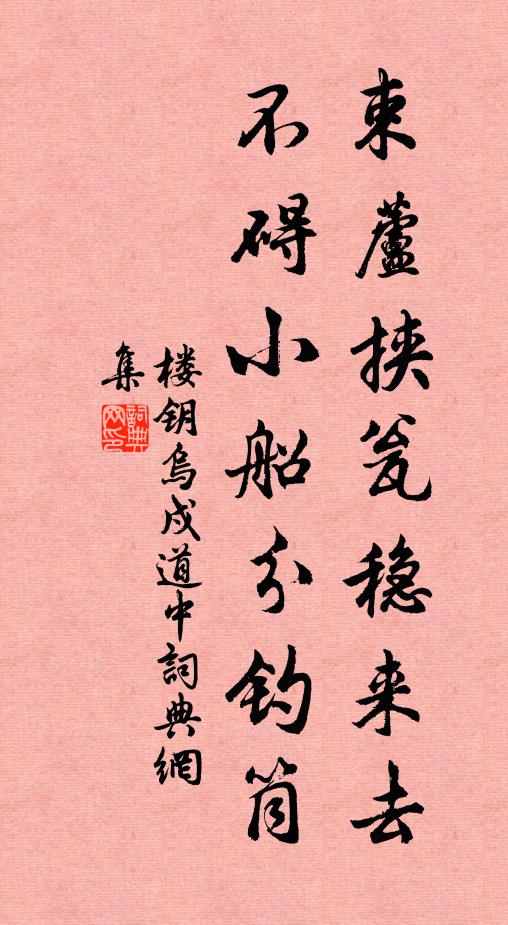 束蘆挟瓮稳来去
不碍小船分钓筒
楼钥烏戍道中詞典網
集
詞典
网印